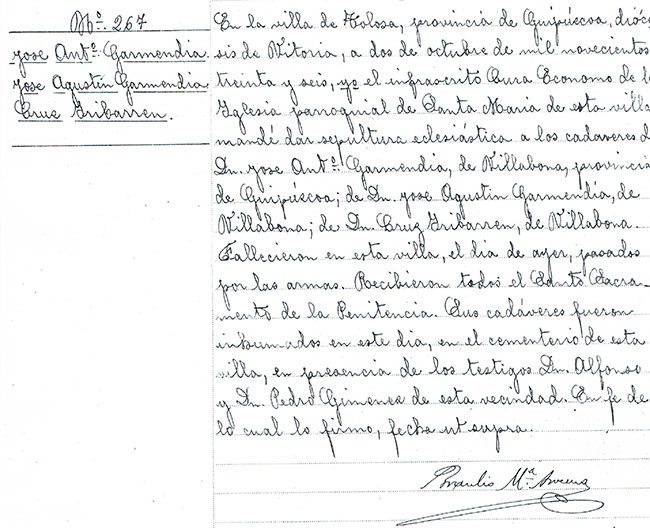 Nº. 267
Jose Antº. Garmendia.
Jose Agustin Garmendia
Cruz Iribarren.
En la villa de Tolosa, provincia de Guipúscoa, dióce
sis de Vitoria, a dos de octubre de mil novecientos
treinta y seis, yo el infrascrito Cura Economo de l
Iglesia parroquial de Santa Maria de esta villa
mandé dar sepultura eclesiástica a los cadaveres d
Dn. Jose Antº. Garmendia, de Villabona, provincia
de Guipúscoa; de Dn. Jose Agustin Garmendia, de
Villabona; de Dn. Cruz Iribarren, de Villabona.
Fallecieron en esta villa, el dia de ayer, pasados
por las armas. Recibieron todos el Santo Sacra-
mento de la Penitencia. Sus cadáveres fueron
inhumados en este dia, en el cementerio de esta
villa, en presencia de los testigos Dn. Alfonso
y Dn. Pedro Gimenez de esta vecindad. En fe de
lo cual lo firmo, fecha ut supra.
Mª.